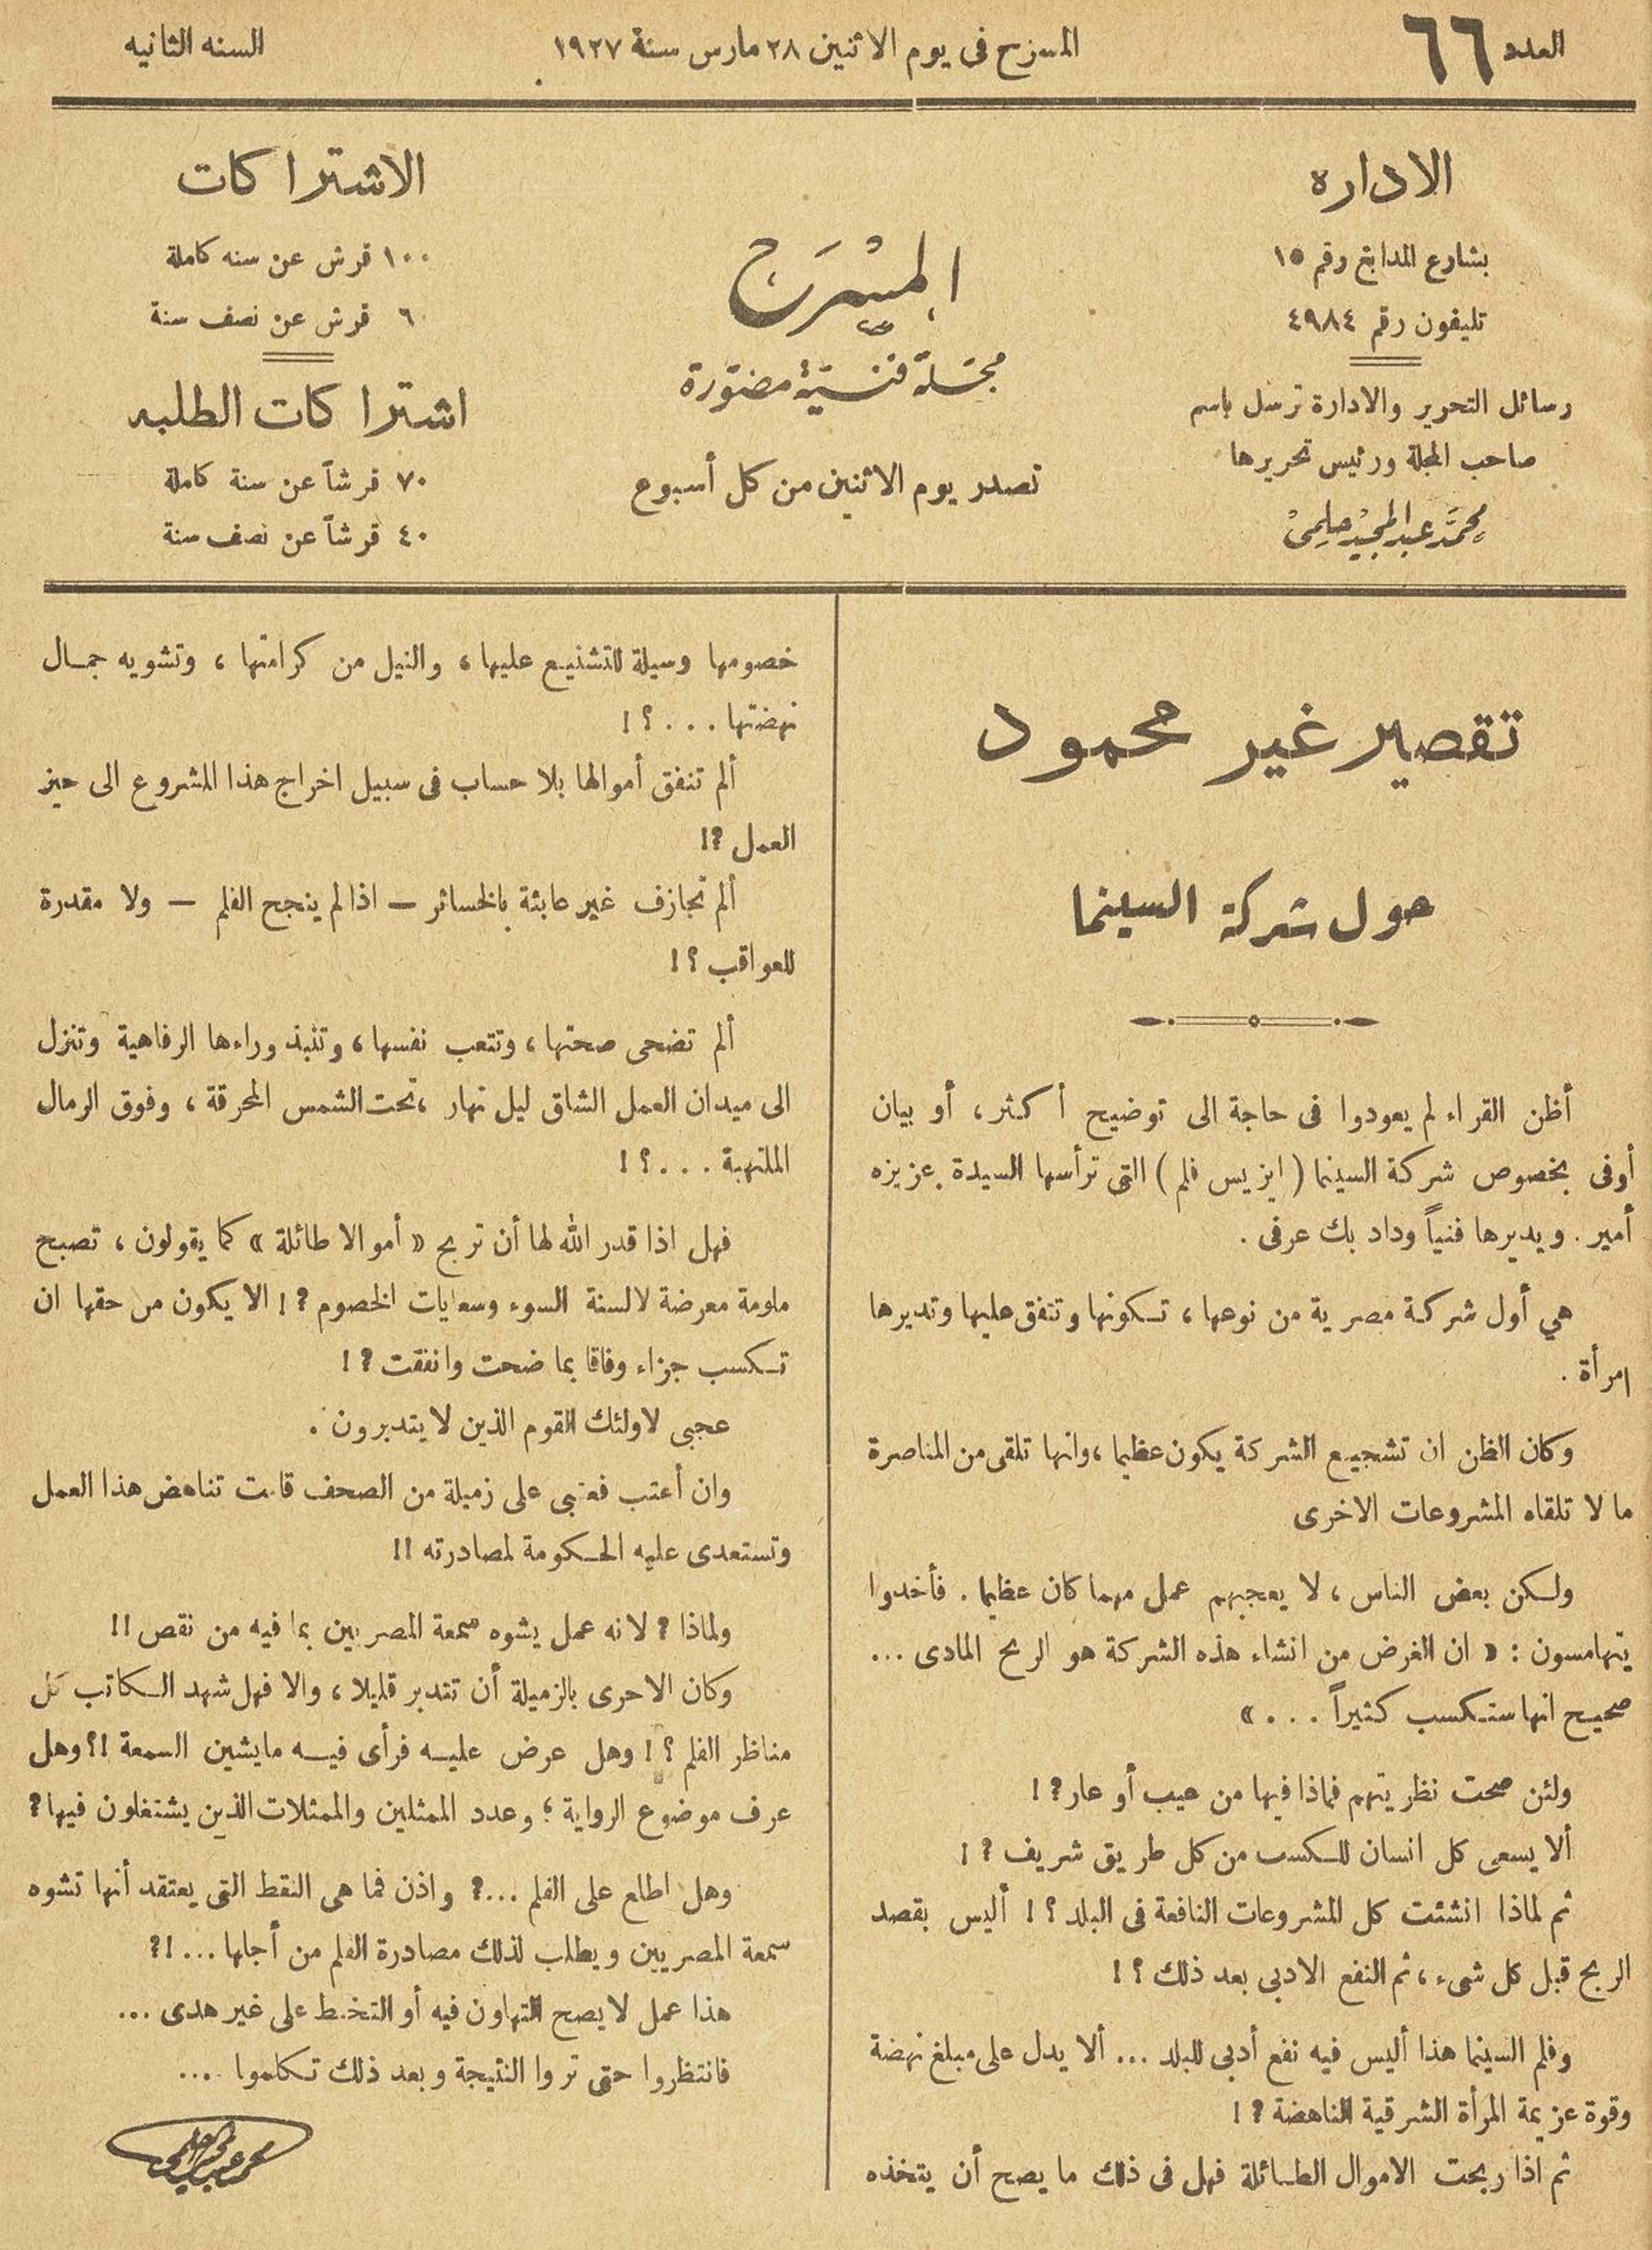 العدد ٦٦
المسرح فى يوم الاثنين ٢٨ مارس سنة ١٩٢٧
السنه الثانيه
الاداره
بشارع المدابغ رقم ١٥
تليفون رقم ٤٩٨٤
رسائل التحرير والادارة ترسل باسم
صاحب المجلة ورئيس تحريرها
محمد عبد المجيد حلمى
المسرح
مجلة فنية مصورة
تصدر يوم الاثنين من كل أسبوع
الاشتراكات
١٠٠ قرش عن سنه كاملة
٦٠ قرش عن نصف سنة
اشتراكات الطلبه
٧٠ قرشاً عن سنة كاملة
٤٠ قرشاً عن نصف سنة
تقصير غير محمود
حول شركة السينما
أظن القراء لم يعودوا فى حاجة الى توضيح أكثر، أو بيان
أوفى بخصوص شركة السينما (ايزيس فلم) التى ترأسها السيدة عزيزه
أمير. ويديرها فنياً وداد بك عرفى.
هي أول شركة مصرية من نوعها، تكونها وتنفق عليها وتديرها
امرأة.
وكان الظن ان تشجيع الشركة يكون عظيما، وانها تلقى من المناصرة
ما لا تلقاه المشروعات الاخرى
ولكن بعض الناس، لا يعجبهم عمل مهما كان عظيما. فأخدوا
يتهامسون: « ان الغرض من انشاء هذه الشركة هو الربح المادى ...
صحيح انها ستكسب كثيراً . . . »
ولئن صحت نظريتهم فماذا فيها من عيب أو عار؟!
ألا يسعى كل انسان للكسب من كل طريق شريف؟!
ثم لماذا انشئت كل المشروعات النافعة فى البلد؟! أليس بقصد
الربح قبل كل شىء، ثم النفع الادبى بعد ذلك؟!
وفلم السينما هذا أليس فيه نفع أدبى للبلد ... ألا يدل على مبلغ نهضة
وقوة عزيمة المرأة الشرقية الناهضة؟!
ثم اذا ربحت الاموال الطائلة فهل فى ذلك ما يصح أن يتخذه
خصومها وسيلة للتشنيع عليها، والنيل من كرامتها، وتشويه جمال
نهضتها . . . ؟!
ألم تنفق أموالها بلا حساب فى سبيل اخراج هذا المشروع الى حيز
العمل؟!
ألم تجازف غير عابئة بالخسائر — اذا لم ينجح الفلم — ولا مقدرة
للعواقب؟!
ألم تضحى صحتها، وتتعب نفسها، وتنبذ وراءها الرفاهية وتنزل
الى ميدان العمل الشاق ليل نهار، تحت الشمس المحرقة، وفوق الرمال
الملتهبة . . . ؟!
فهل اذا قدر الله لها أن تربح « أموالا طائلة » كما يقولون، تصبح
ملومة معرضة لالسنة السوء وسعايات الخصوم؟! الا يكون من حقها ان
تكسب جزاء وفاقا بما ضحت وانفقت؟!
عجبى لاولئك القوم الذين لا يتدبرون.
وان أعتب فعتبى على زميلة من الصحف قامت تناهض هذا العمل
وتستعدى عليه الحكومة لمصادرته!!
ولماذا؟ لانه عمل يشوه سمعة المصريين بما فيه من نقص!!
وكان الاحرى بالزميلة أن تتدبر قليلا، والا فهل شهد الكاتب كل
مناظر الفلم؟! وهل عرض عليه فرأى فيه مايشين السمعة!؟ وهل
عرف موضوع الرواية؛ وعدد الممثلين والممثلات الذين يشتغلون فيها؟
وهل اطلع على الفلم ...؟ واذن فما هى النقط التى يعتقد أنها تشوه
سمعة المصريين ويطلب لذلك مصادرة الفلم من أجلها ...!؟
هذا عمل لا يصح التهاون فيه أو التخبط على غير هدى ...
فانتظروا حتى تروا النتيجة وبعد ذلك تكلموا ....
محمد عبد المجيد حلمى